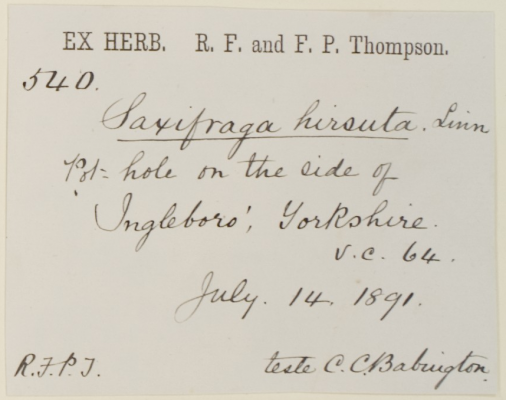 EX HERB. R. F. and F. P. Thompson.
540.
Saxifraga hirsuta. Linn
Pot-hole on the side of
Ingleboro', Yorkshire.
v.c. 64.
July. 14. 1891.
R.F.P.T. teste C.C.Babington.